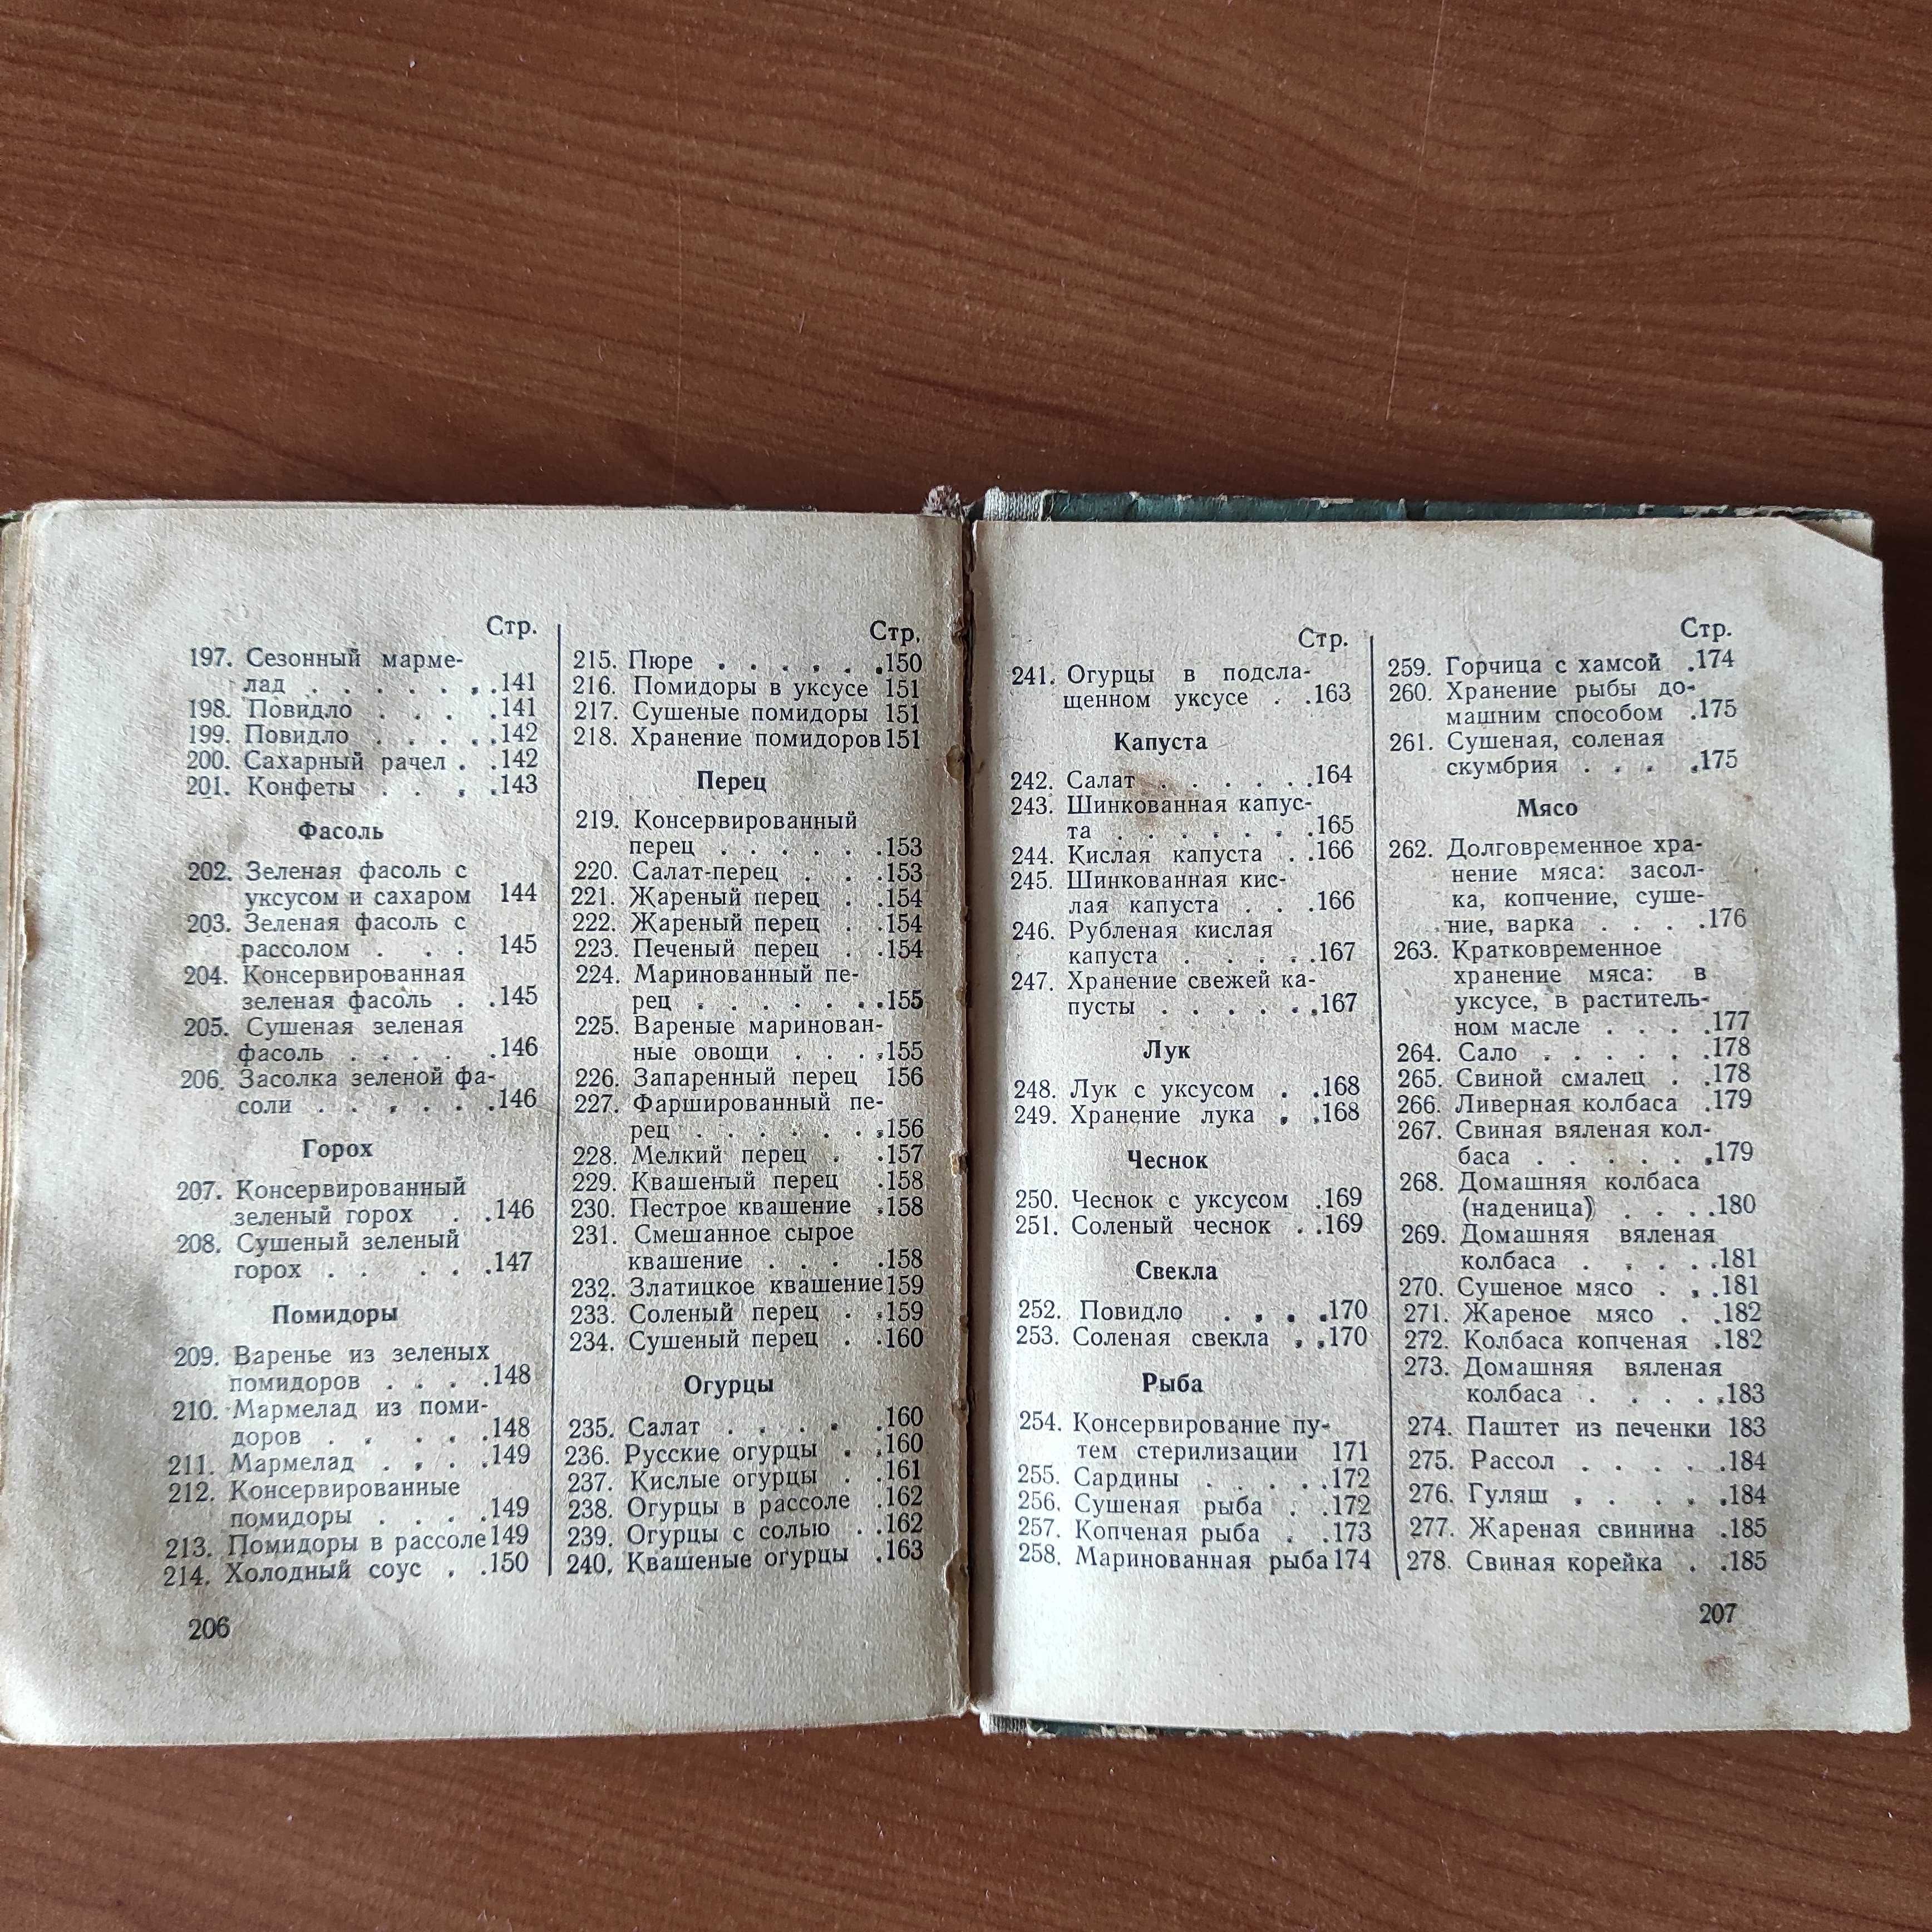 Стр.
197. Сезонный марме-
лад . . . . . . .141
198. Повидло . . . .141
199. Повидло . . . . .142
200. Сахарный рачел . .142
201. Конфеты . . . .143
Фасоль
202. Зеленая фасоль с
уксусом и сахаром 144
203. Зеленая фасоль с
рассолом . . . 145
204. Консервированная
зеленая фасоль . .145
205. Сушеная зеленая
фасоль . . . . .146
206. Засолка зеленой фа-
соли . . . . . .146
Горох
207. Консервированный
зеленый горох . .146
208. Сушеный зеленый
горох . . . . .147
Помидоры
209. Варенье из зеленых
помидоров . . . .148
210. Мармелад из поми-
доров . . . . .148
211. Мармелад . . . .149
212. Консервированные
помидоры . . . .149
213. Помидоры в рассоле 149
214. Холодный соус . .150
206
Стр.
215. Пюре . . . . . .150
216. Помидоры в уксусе 151
217. Сушеные помидоры 151
218. Хранение помидоров 151
Перец
219. Консервированный
перец . . . . . .153
220. Салат-перец . . .153
221. Жареный перец . .154
222. Жареный перец . .154
223. Печеный перец . .154
224. Маринованный пе-
рец . . . . . . .155
225. Вареные маринован-
ные овощи . . . .155
226. Запаренный перец 156
227. Фаршированный пе-
рец . . . . . . .156
228. Мелкий перец . .157
229. Квашеный перец .158
230. Пестрое квашение .158
231. Смешанное сырое
квашение . . . .158
232. Златицкое квашение 159
233. Соленый перец . .159
234. Сушеный перец . .160
Огурцы
235. Салат . . . . .160
236. Русские огурцы . .160
237. Кислые огурцы . .161
238. Огурцы в рассоле .162
239. Огурцы с солью . .162
240. Квашеные огурцы .163
Стр.
241. Огурцы в подсла-
щенном уксусе . .163
Капуста
242. Салат . . . . . .164
243. Шинкованная капус-
та . . . . . . .165
244. Кислая капуста . .166
245. Шинкованная кис-
лая капуста . . .166
246. Рубленая кислая
капуста . . . . .167
247. Хранение свежей ка-
пусты . . . . . .167
Лук
248. Лук с уксусом . .168
249. Хранение лука . .168
Чеснок
250. Чеснок с уксусом .169
251. Соленый чеснок . .169
Свекла
252. Повидло . . . .170
253. Соленая свекла . .170
Рыба
254. Консервирование пу-
тем стерилизации 171
255. Сардины . . . . .172
256. Сушеная рыба . .172
257. Копченая рыба . .173
258. Маринованная рыба 174
Стр.
259. Горчица с хамсой .174
260. Хранение рыбы до-
машним способом .175
261. Сушеная, соленая
скумбрия . . . .175
Мясо
262. Долговременное хра-
нение мяса: засол-
ка, копчение, суше-
ние, варка . . . .176
263. Кратковременное
хранение мяса: в
уксусе, в раститель-
ном масле . . . .177
264. Сало . . . . . .178
265. Свиной смалец . .178
266. Ливерная колбаса .179
267. Свиная вяленая кол-
баса . . . . . .179
268. Домашняя колбаса
(наденица) . . . .180
269. Домашняя вяленая
колбаса . . . . .181
270. Сушеное мясо . . .181
271. Жареное мясо . .182
272. Колбаса копченая .182
273. Домашняя вяленая
колбаса . . . . .183
274. Паштет из печенки 183
275. Рассол . . . . .184
276. Гуляш . . . . .184
277. Жареная свинина .185
278. Свиная корейка . .185
207